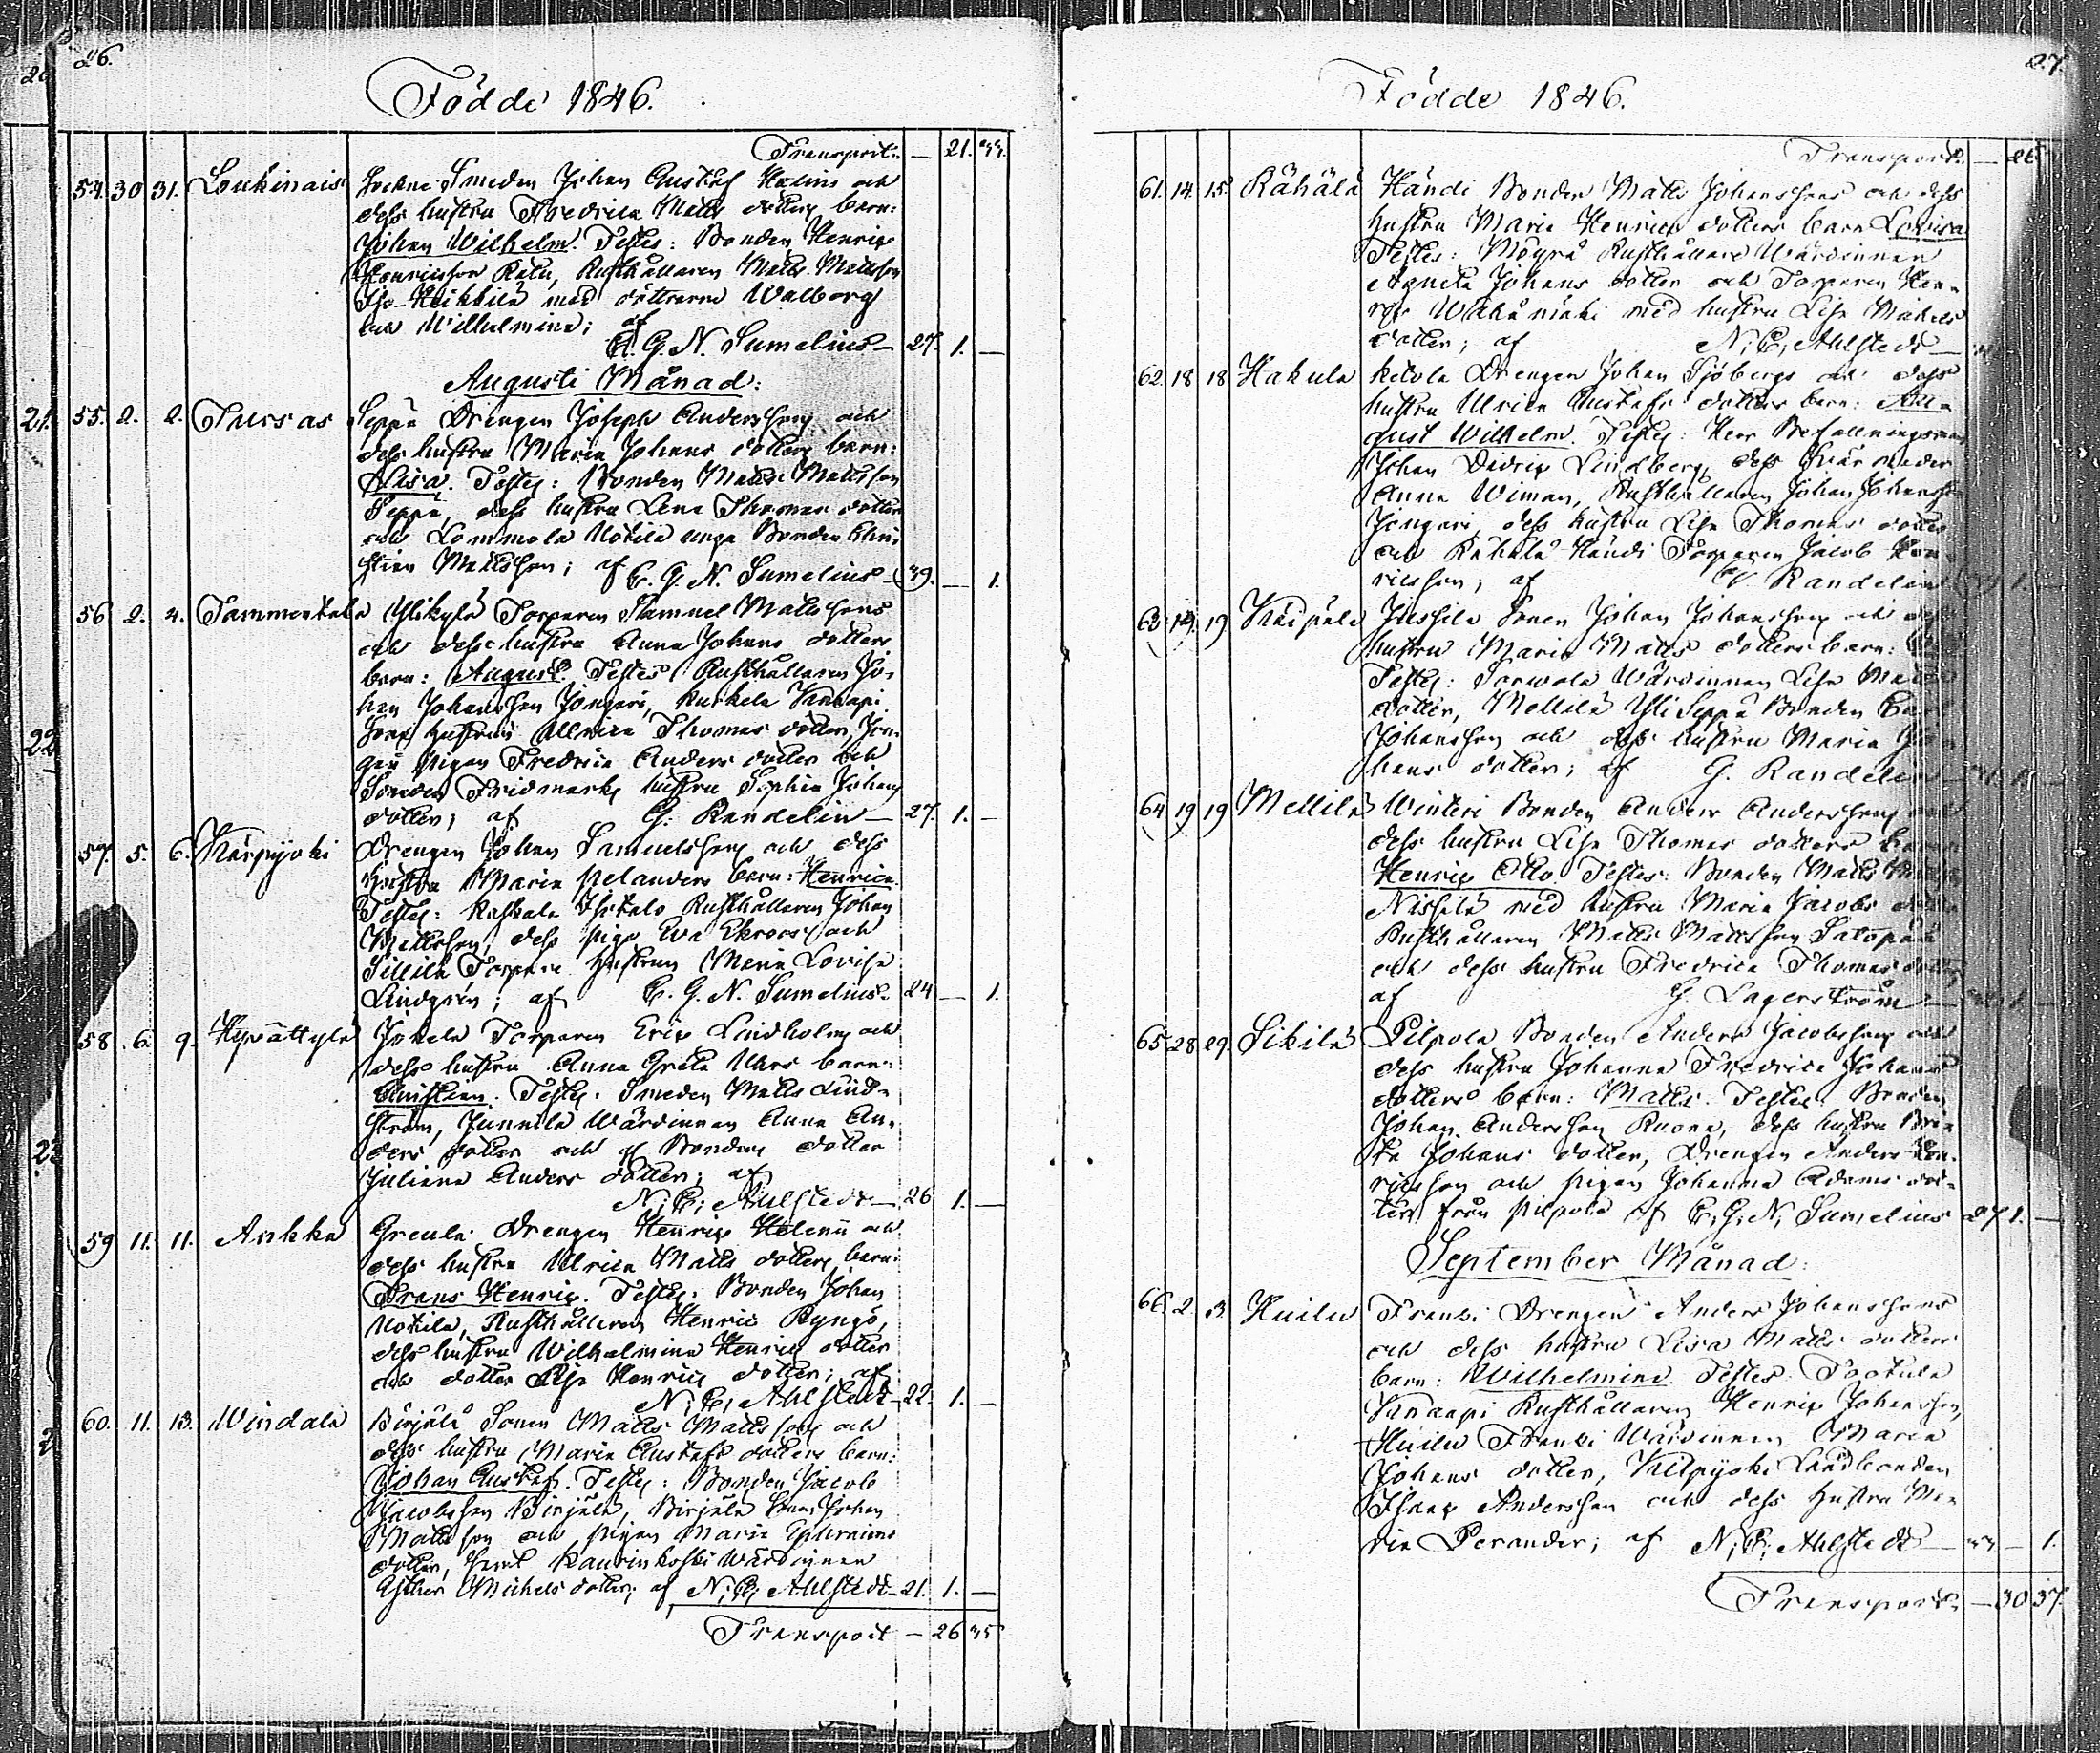 26.
Födde 1846.
Transport — 21. 33.
54. 30 31. Loukinais Sockne Smeden Johan Gustaf Helins och
dess hustru Fredrica Matts dotters barn:
Johan Wilhelm. Testes: Bonden Henric
Henricsson Kalu, Rusthållaren Matts Mattsson
Iso-Heikkilä med döttrarne Walborg
och Wilhelmina; af
C. G. N. Sumelius — 27. 1. —
Augusti Månad:
21. 55. 2. 2. Tursas Seppä Drengen Joseph Anderssons och
dess hustru Maria Johans dotters barn:
Lisa. Testes: Bonden Matts Mattsson
Seppä, dess hustru Lena Thomas dotter
och Lammala Uotila unga Bonden Chri-
stian Mattsson; af C. G. N. Sumelius — 39. — 1.
56 2. 4. Tammentaka Ylikylä Torparen Samuel Mattssons
och dess hustru Anna Johans dotters
barn: August. Testes Rusthållaren Jo-
han Johansson Jongari, Kuskela Knaapi
Sone hustrun Ullrica Thomas dotter, Jon-
gari pigan Fredrica Anders dotter och
22 Smeden Fridmarks hustru Sophia Johans
dotter; af G. Randelin — 27. 1. —
57. 5. 6. Kärpijoki Drengen Johan Samuelssons och dess
hustru Maria Melanders barn: Henrica.
Testes: Kaskala Isotalo Rusthållaren Johan
Mattsson, dess piga Eva Ekroos och
Sillilä Torpare hustrun Maria Lovisa
Lindgrén; af C. G. N. Sumelius 24 — 1.
58. 6. 9. Hyvättylä Jokela Torparen Eric Lindholms och
dess hustru Anna Greta Uhrs barn:
Christian. Testes: Smeden Matts Lind-
23 ström, Junnila Wärdinnan Anna An-
ders dotter och Bonden dotter
Juliana Anders dotter; af
N. C. Ahlstedt — 26 1. —
59 11. 11. Ankka Greula Drengen Henric Helenii och
dess hustru Ulrica Matts dotters barn:
Frans Henric. Testes: Bonden Johan
Uotila, Rusthållaren Henric Ryngö,
dess hustru Wilhelmina Henrics dotter
och dotter Lisa Henrics dotter; af
N. C. Ahlstedt — 22. 1. —
60. 11. 13. Windala Birjälä Sonen Matts Mattssons och
dess hustru Maria Gustafs dotters barn:
Johan Gustaf. Testes: Bonden Jacob
Jacobsson Birjälä, Birjälä Sonen Johan
Mattsson och pigan Maria Ephraims
dotter, samt Kaurinkoski Wärdinnan
Esther Michels dotter; af N. C. Ahlstedt — 21. 1. —
Transport — 26 35
27.
Födde 1846.
Transport —
61. 14. 15 Rähälä Händi Bonden Matts Johanssons och dess
hustru Maria Henrics dotters barn Lovisa
Testes: Möyrä Rusthållare Wärdinnan
Agneta Johans dotter och Torparen Hen-
ric Wähämäki med hustru Lisa Michels
dotter; af N. C. Ahlstedt —
62. 18 18 Hakula Ketola Drengen Johan Sjöbergs och dess
hustru Ulrica Gustafs dotters barn: Au-
gust Wilhelm. Testes: Herr Befallningsman
Johan Didric Lindberg, dess Svärmoder
Anna Wiman, Rusthållaren Johan Johansson
Jongari, dess hustru Lisa Thomas dotter
och Rähälä Händi Torparen Jacob Hen-
ricsson; af G. Randelin
63. 19. 19 Käipälä Jussila Sonen Johan Johanssons och dess
hustru Maria Matts dotters barn:
Testes: Sorwala Wärdinnan Lisa Matts
dotter, Mellilä Yli Seppä Bonden Carl
Johansson och dess hustru Maria Jo-
hans dotter; af G. Randelin —
64 19 19 Mellilä Winteri Bonden Anders Anderssons och
dess hustru Lisa Thomas dotters barn
Henric Otto Testes: Bonden Matts
Nissilä med hustru Maria Jacobs dotter
Rusthållaren Matts Mattsson Satopää
och dess hustru Fredrica Thomas dotter
af G. Lagerström —
65 28 29. Sikilä Pilpola Bonden Anders Jacobssons och
dess hustru Johanna Fredrica Johans
dotters barn: Matts. Testes Bonden
Johan Andersson Ruona, dess hustru Bri-
ta Johans dotter, Drengen Anders Hen-
ricsson och pigan Johanna Adams dot-
ter från Pilpola af C. G. N. Sumelius 27 1. —
September Månad:
66. 2. 3 Huilu Fransi Drengen Anders Johanssons
och dess hustru Lisa Matts dotters
barn: Wilhelmina. Testes: Tootula
Knaapi Rusthållaren Henric Johansson,
Huilu Fransi Wärdinnan Maria
Johans dotter, Kilpijoki Landbonden
Isaac Andersson och dess hustru Ma-
ria Perander; af N. C. Ahlstedt — 33 — 1.
Transport — 30 37.